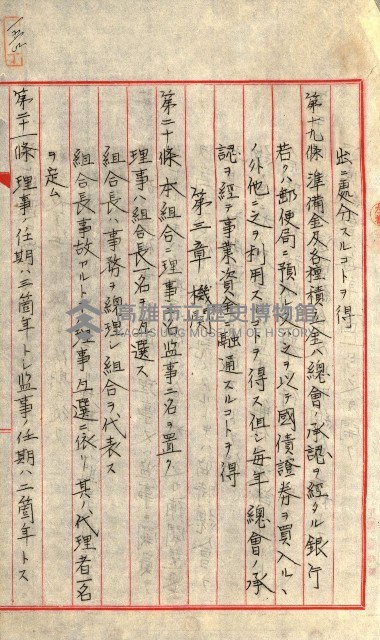 出ニ處分スルコトヲ得
第十九條 準備金及各種積立金ハ總會ノ承認ヲ經タル銀行
若クハ郵便局ニ預入レ又ハ之ヲ以テ國債證券ヲ買入ルヽ
ノ外他ニ之ヲ利用スルコトヲ得ス但シ毎年總會ノ承
認ヲ經テ事業資金ニ融通スルコトヲ得
第三章 機關
第二十條 本組合ニ理事 名監事二名ヲ置ク
理事ハ組合長一名ヲ互選ス
組合長ハ事務ヲ總理シ組合ヲ代表ス
組合長事故アルトキハ理事ノ互選ニ依リ其ノ代理者一名
ヲ定ム
第二十一條 理事ノ任期ハ三箇年トシ監事ノ任期ハ二箇年トス
高雄市立歷史博物館
KAOHSIUNG MUSEUM OF HISTORY